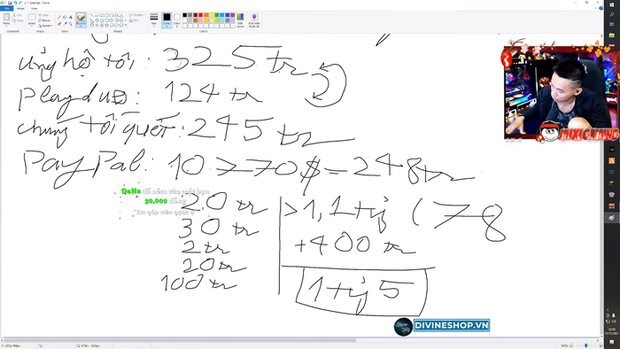 ủng hộ tôi: 325 tr
playduo: 124 tr
chúng tôi quét: 245 tr
PayPal: 10.770$ = 248 tr
DaNa đã ném vào mặt bạn
30,000 đồng
20 tr > 1,1 tỷ (78
30 tr + 400 tr
2 tr
20 tr
100 tr 1 tỷ 5
MIXIGAMING
DIVINESHOP.VN